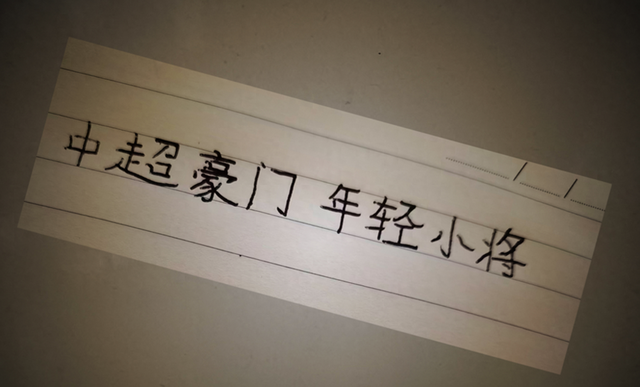 中超豪门 年轻小将